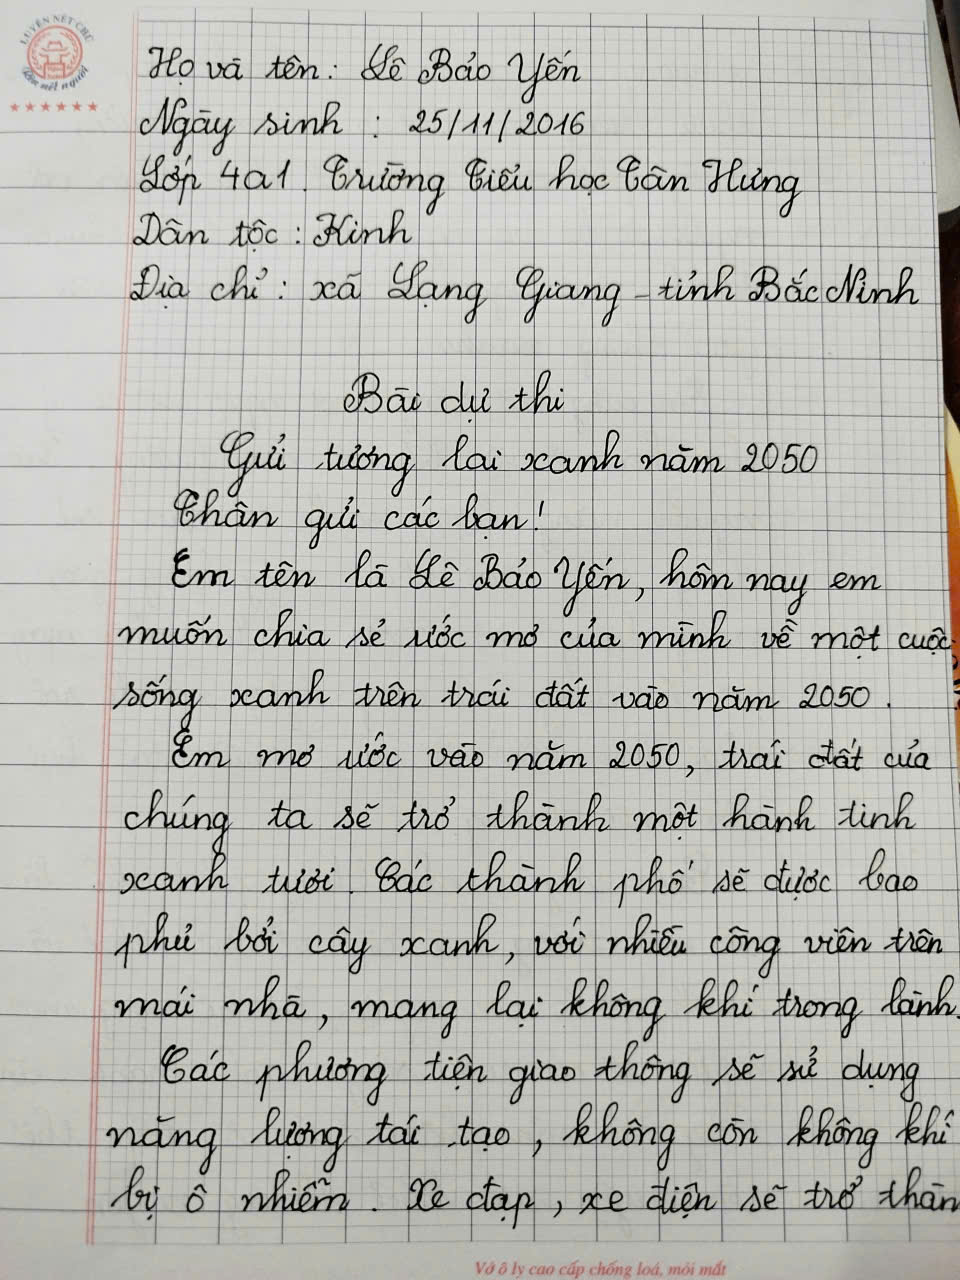 LUYỆN NÉT CHỮ
Rèn nết người
Họ và tên: Lê Bảo Yến
Ngày sinh : 25/11/2016
Lớp 4a1. Trường Tiểu học Tân Hưng
Dân tộc : Kinh
Địa chỉ : xã Lạng Giang - tỉnh Bắc Ninh
Bài dự thi
Gửi tương lai xanh năm 2050
Thân gửi các bạn!
Em tên là Lê Bảo Yến, hôm nay em
muốn chia sẻ ước mơ của mình về một cuộc
sống xanh trên trái đất vào năm 2050.
Em mơ ước vào năm 2050, trái đất của
chúng ta sẽ trở thành một hành tinh
xanh tươi. Các thành phố sẽ được bao
phủ bởi cây xanh, với nhiều công viên trên
mái nhà, mang lại không khí trong lành.
Các phương tiện giao thông sẽ sử dụng
năng lượng tái tạo, không còn không khí
bị ô nhiễm. Xe đạp, xe điện sẽ trở thàn
Vở ô ly cao cấp chống loá, mỏi mắt